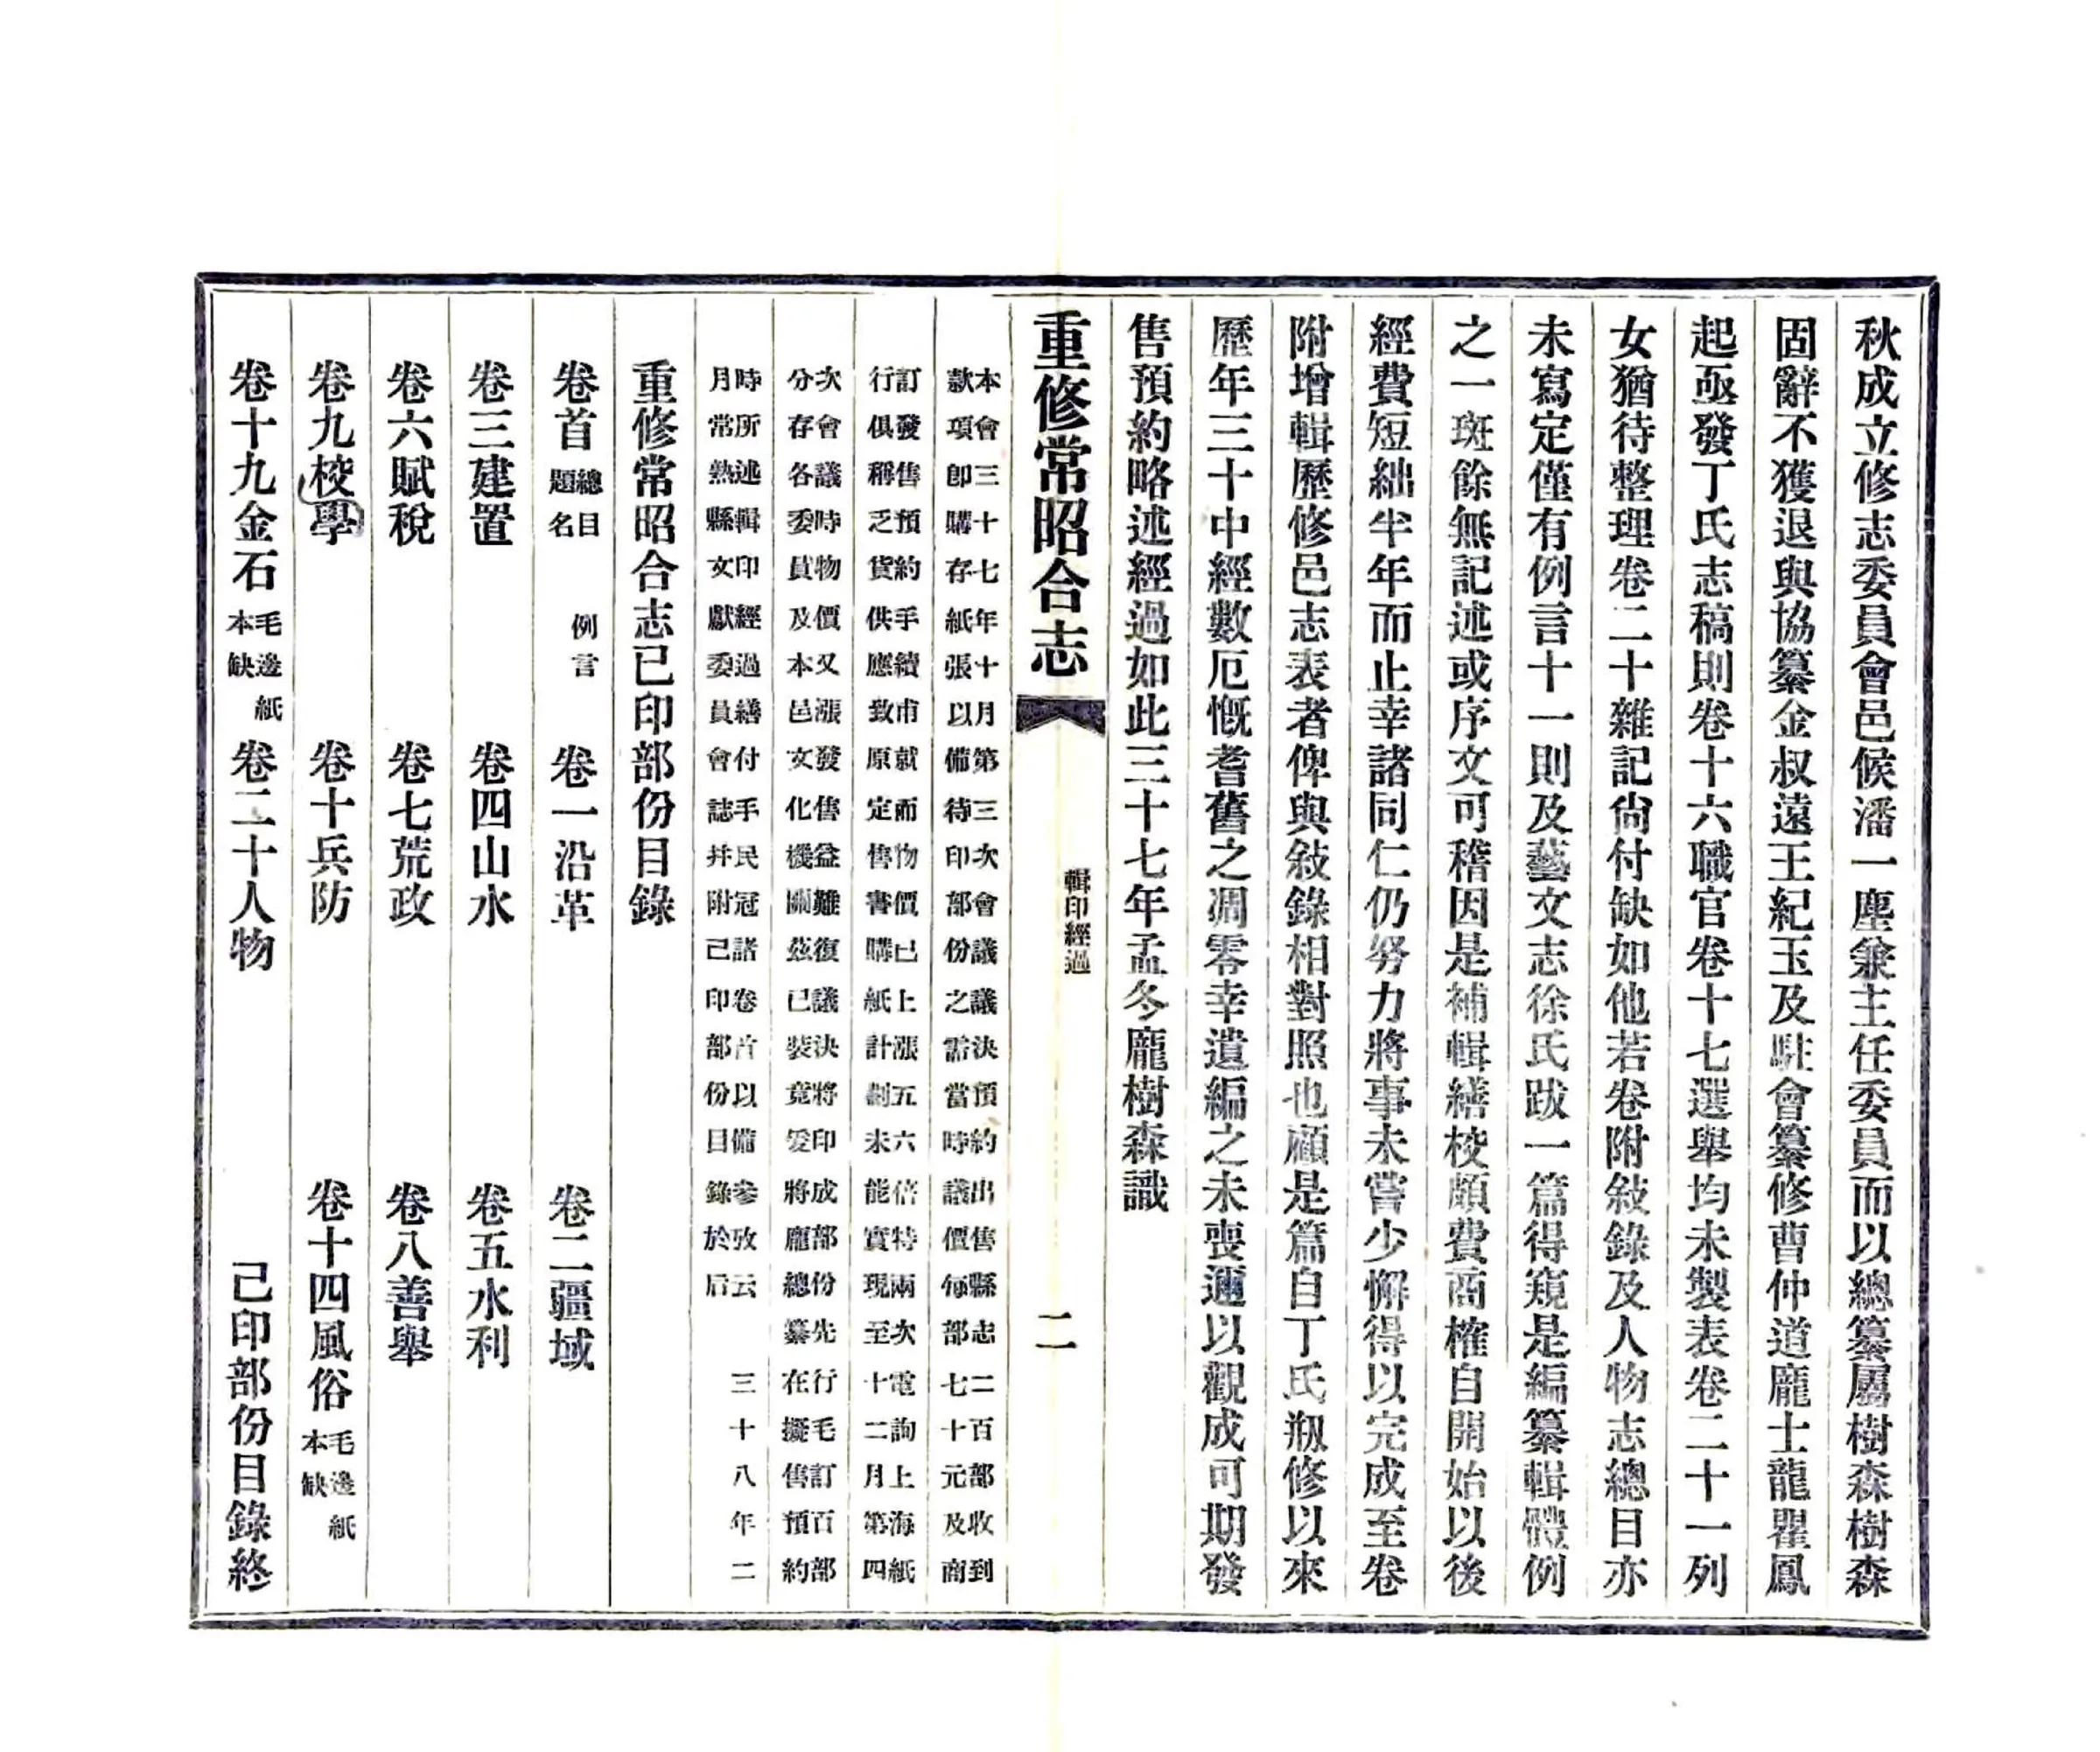 秋成立修志委員會邑候潘一塵兼主任委員而以總纂屬樹森樹森
固辭不獲退與協纂金叔遠王紀玉及駐會纂修曹仲道龐士龍瞿鳳
起亟發丁氏志稿則卷十六職官卷十七選舉均未製表卷二十一列
女猶待整理卷二十雜記尙付缺如他若卷附敍錄及人物志總目亦
未寫定僅有例言十一則及藝文志徐氏跋一篇得窺是編纂輯體例
之一斑餘無記述或序文可稽因是補輯繕校頗費商榷自開始以後
經費短絀半年而止幸諸同仁仍努力將事未嘗少懈得以完成至卷
附增輯歷修邑志表者俾與敍錄相對照也顧是篇自丁氏剏修以來
歷年三十中經數厄慨耆舊之凋零幸遺編之未喪邇以觀成可期發
售預約略述經過如此三十七年孟冬龐樹森識
重修常昭合志
輯印經過
二
本會三十七年十月第三次會議議決預約出售縣志二百部收到
款項卽購存紙張以備待印部份之需當時議價每部七十元及商
訂發售預約手續甫就而物價已上漲五六倍特兩次電詢上海紙
行俱稱乏貨供應致原定售書購紙計劃未能實現至十二月第四
次會議時物價又漲發售益難復議決將印成部份先行毛訂百部
分存各委員及本邑文化機關茲已裝竟爰將龐總纂在擬售預約
時所述輯印經過繕付手民冠諸卷首以備參攷云
月常熟縣文獻委員會誌幷附己印部份目錄於后
三十八年二
重修常昭合志已印部份目錄
卷首 總目題名 例言 卷一沿革 卷二疆域
卷三建置 卷四山水 卷五水利
卷六賦稅 卷七荒政 卷八善舉
卷九校學 卷十兵防 卷十四風俗 毛邊紙本缺
卷十九金石 毛邊紙本缺 卷二十人物 己印部份目錄終